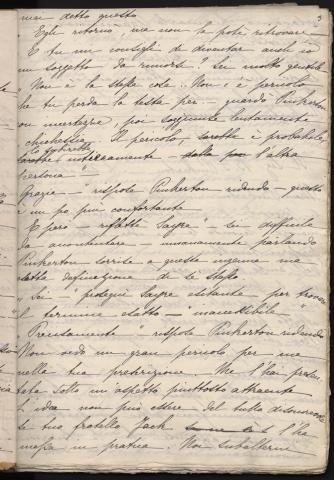 mai detto questo
3
Egli ritornò, ma non la potè ritrovare
E tu mi consigli di diventar anch'io
un soggetto da rimorsi? Sei molto gentile
Non è la stessa cosa. Non c'è pericolo
che tu perda la testa per
o incertezze, poi soggiunse lentamente
Il pericolo, sarebbe probabile
sarebbe unicamente l'altra
persona"
Grazie - rispose Pinkerton ridendo - questo
è un po' più confortante
E però - rifletté Sayre - sei difficile
da accontentare umanamente parlando
Pinkerton sorrise a questa ingenua ma
esatta definizione di se stesso
"Sei" proseguì Sayre esitando per trovare
il termine esatto - "inaccessibile"
Precisamente" rispose Pinkerton ridendo
Non vedo un gran pericolo per me
nella tua predizione. Me l'hai presen
tata sotto un'aspetto piuttosto attraente
L'idea non può essere del tutto disonorevole
se tuo fratello Jack l'ha
messa in pratica. Noi subalterni